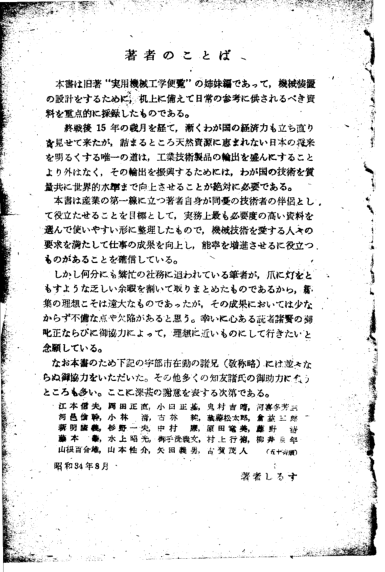 著者のことば
本書は旧著“実用機械工学便覧”の姉妹編であって，機械装置
の設計をするために，机上に備えて日常の参考に供されるべき資
料を重点的に採録したものである。
終戦後 15 年の歳月を経て，漸くわが国の経済力も立ち直り
を見せて来たが，詰まるところ天然資源に恵まれない日本の将来
を明るくする唯一の道は，工業技術製品の輸出を盛んにすること
より外はなく，その輸出を振興するためには，わが国の技術を質
量共に世界的水準まで向上させることが絶対に必要である。
本書は産業の第一線に立つ著者自身が同憂の技術者の伴侶とし
て役立たせることを目標として，実務上最も必要度の高い資料を
選んで使いやすい形に整理したもので，機械技術を愛する人々の
要求を満たして仕事の成果を向上し，能率を増進させるに役立つ
ものがあることを確信している。
しかし何分にも繁忙の社務に追われている筆者が，爪に灯をと
もすような乏しい余暇を割いて取りまとめたものであるから，編
集の理想こそは遠大なものであったが，その成果においては少な
からず不備な点や欠陥があると思う。幸いに心ある読者諸賢の御
叱正ならびに御協力によって，理想に近いものにして行きたいと
念願している。
なお本書のため下記の宇部市在勤の諸兄（敬称略）には並々な
らぬ御協力をいただいた。その他多くの知友諸氏の御助力に
ところも多い。ここに深甚の謝意を表する次第である。
江本信夫，岡田正直，小口正基，
小林 清，
杉野一夫，中村
藤本 水上昭光， 村上行徳，
山根百合雄，山本 矢田義男，古賀茂人
昭和34年8月
著者しるす